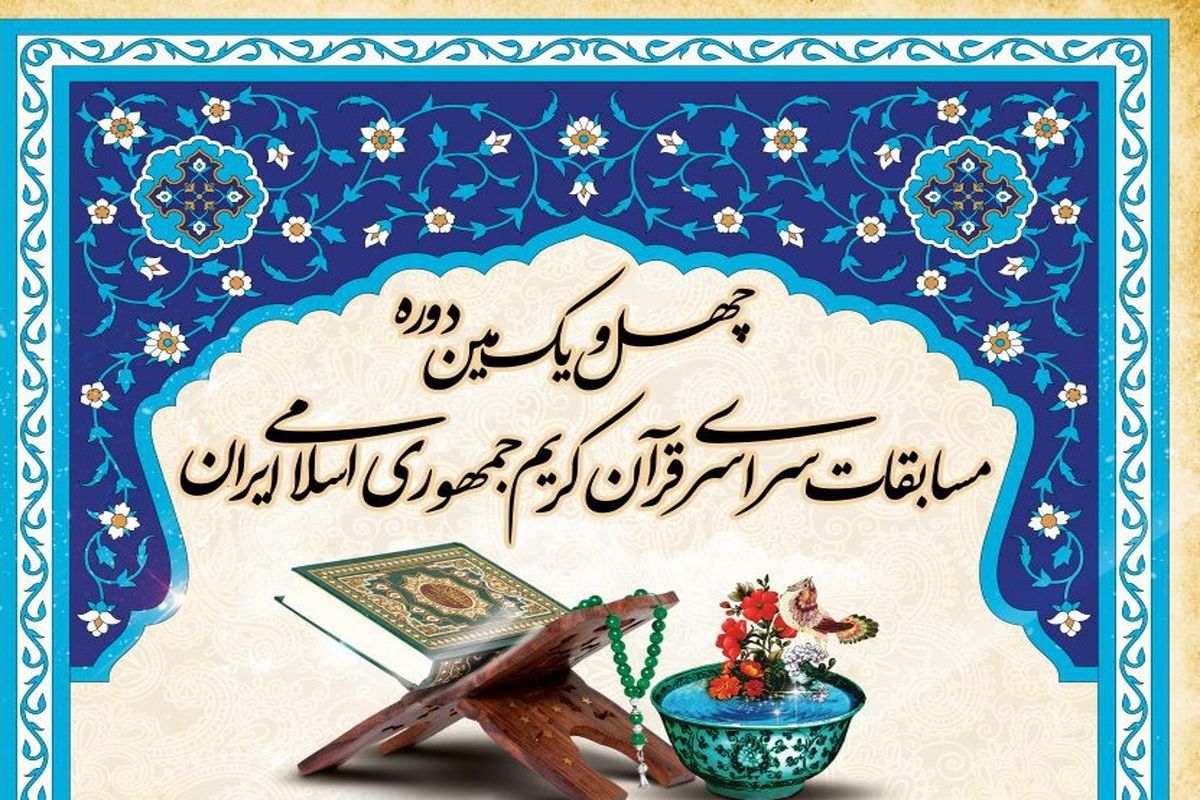 چهل و یک مین دوره
مسابقات سراسری قرآن کریم جمهوری اسلامی ایران